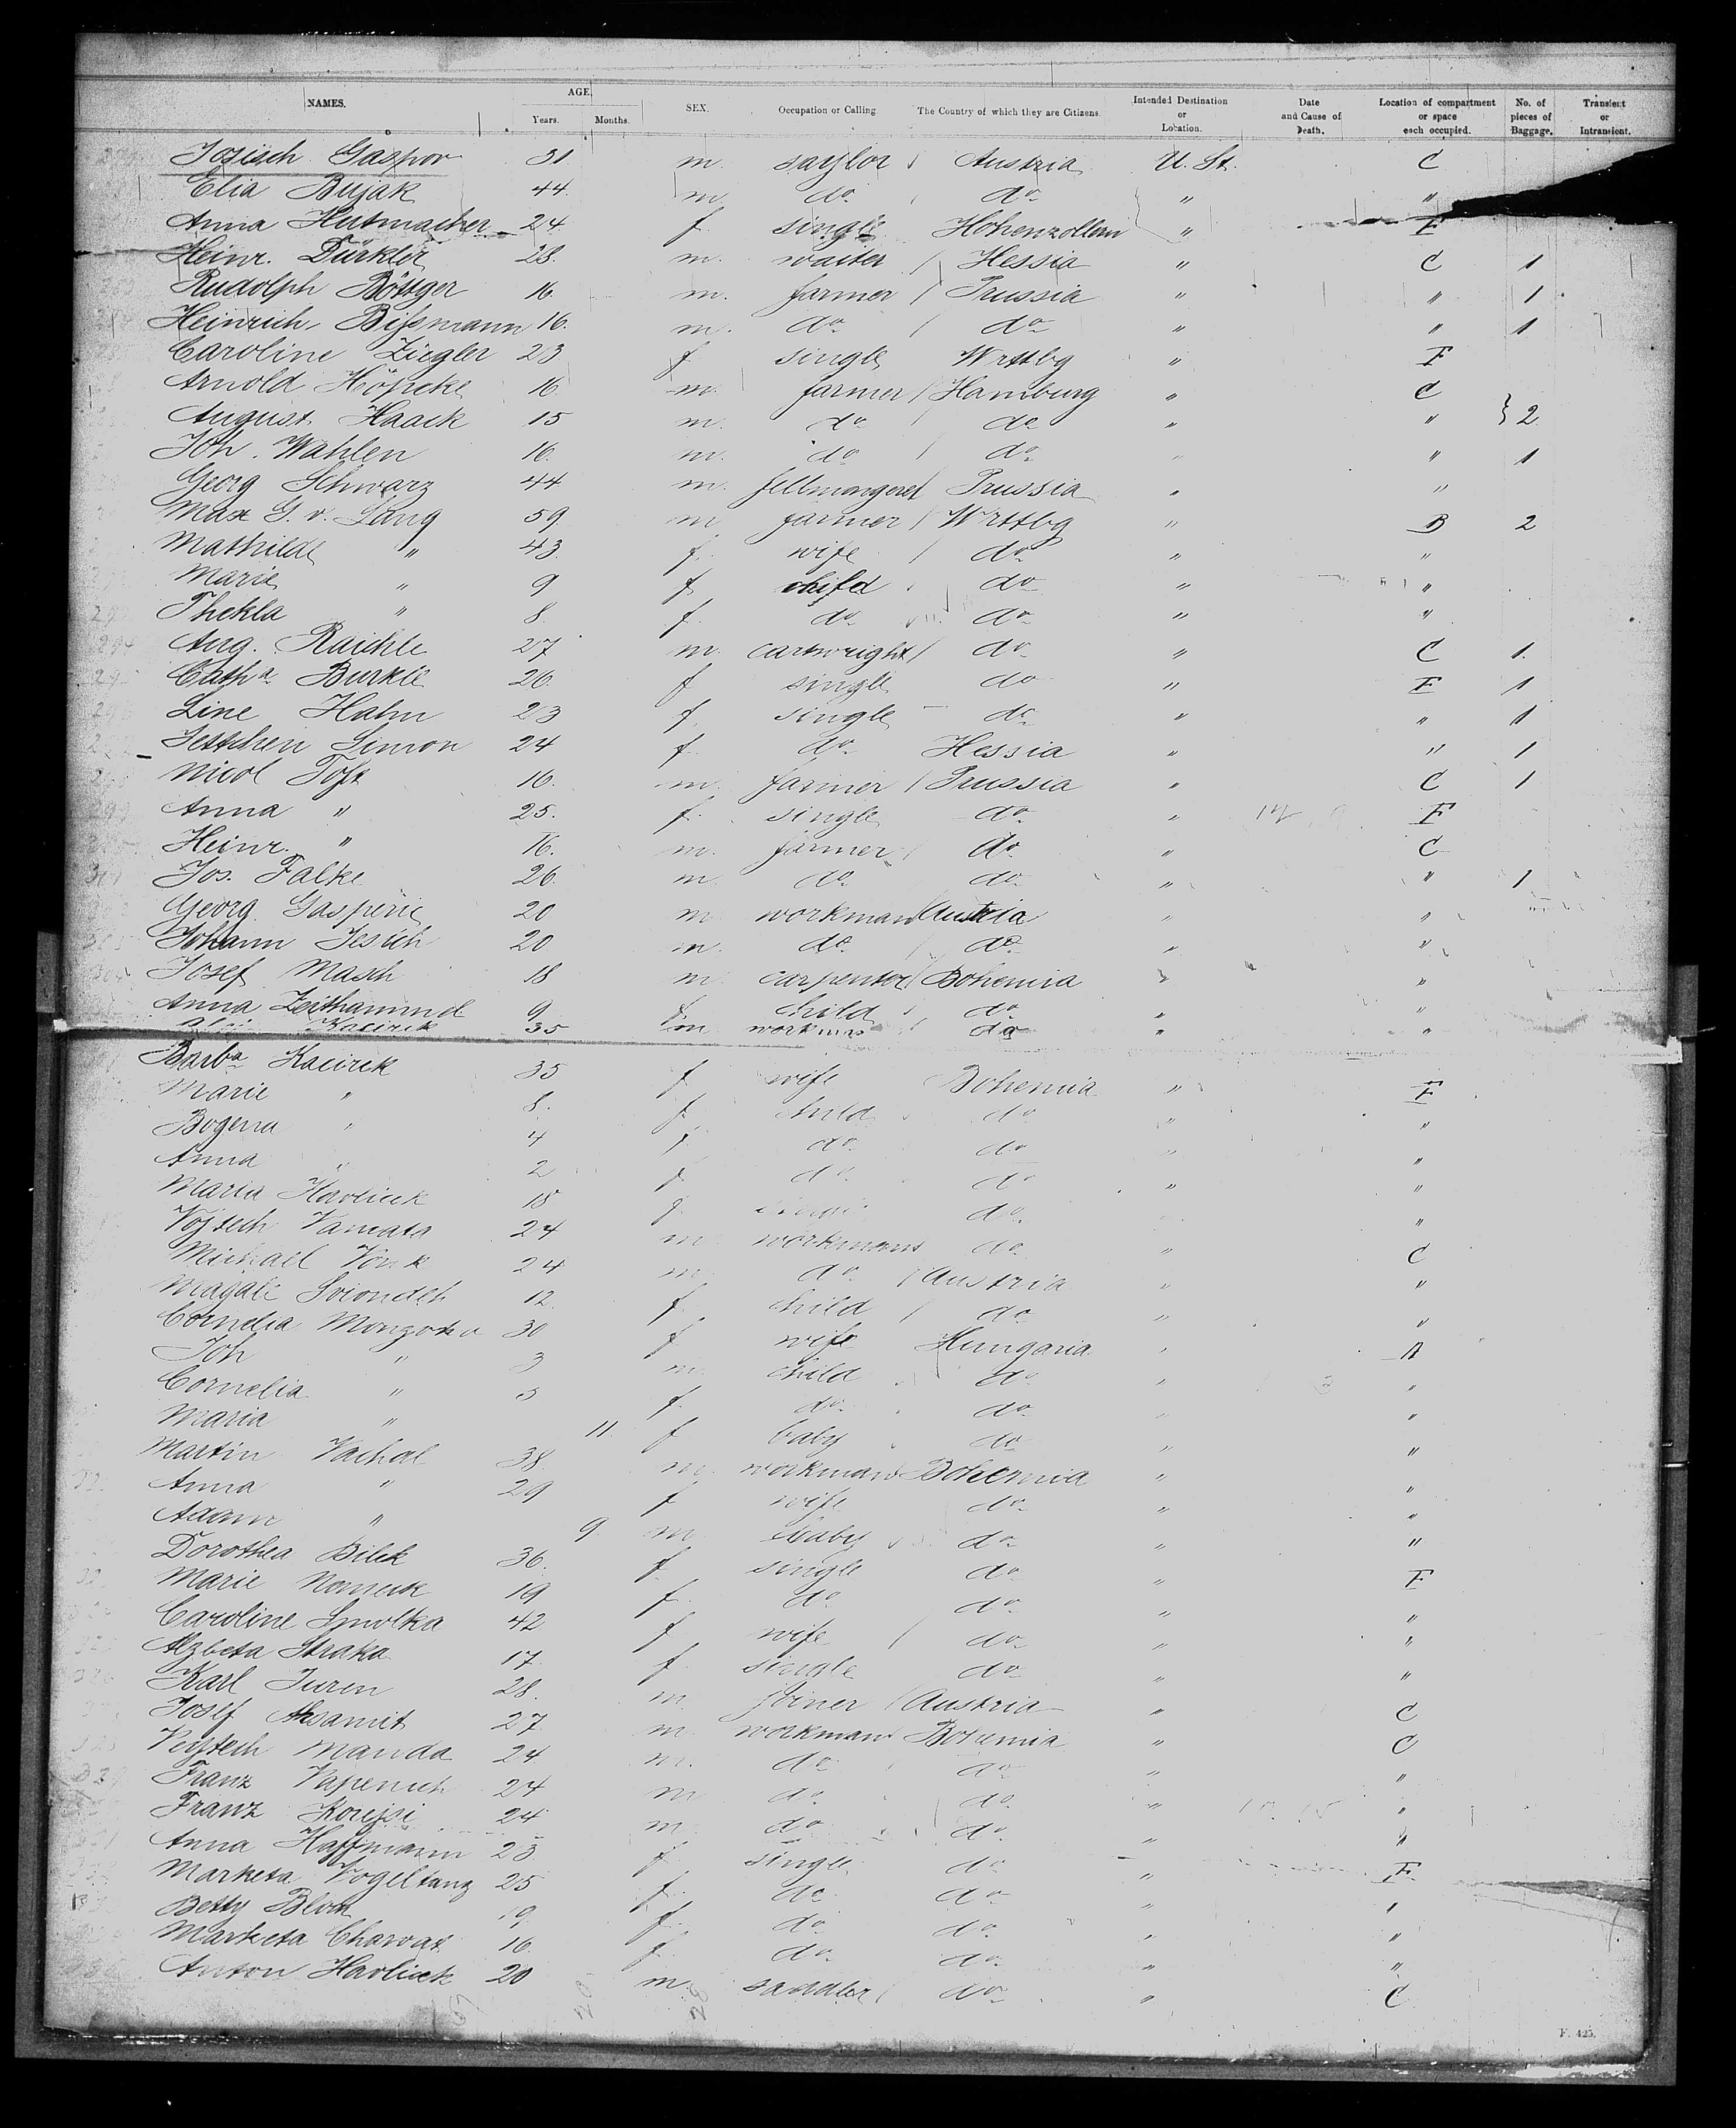 NAMES. AGE. Years. Months. SEX. Occupation or Calling The Country of which they are Citizens. Intended Destination or Location. Date and Cause of Death. Location of compartment or space each occupied. No. of pieces of Baggage. Transient or Intransient.
Josisch Gaspor 31 m. saylor Austria U. St. C
Elia Bujak 44 m do do " "
Anna Hutmacher 24 f single Hohenzollern " F
Heinr. 28. m. waiter Hessia " C 1
Rudolph Böttger 16 m. farmer Prussia " " 1
Heinrich Bißmann 16. m. do do " " 1
Caroline Ziegler 23 f single Wrttbg " F
Arnold Höpcke 16 m. farmer Hamburg " C
August Haack 15 m. do do " " } 2
Joh. Wahlen 16. m. do do " " 1
Georg Schwarz 44 m. fellmonger Prussia " "
Max G. v. Lang 59 m farmer Wrttbg " B 2
Mathilde " 43 f. wife do " "
Marie " 9 f child do " "
Thekla " 8 f. do do " "
Aug. Raichle 27 m. cartwright do " C 1.
Catha Burkle 26 f single do " F 1
Line Hahn 23 f. single do " " 1
Simon 24 f. do Hessia " " 1
Nicol Toft 16. m. farmer Prussia " C 1
Anna " 25. f. single do " F
Heinr. " 16. m. farmer do " C
Jos. Falke 26. m do do " " 1
Georg Gasperic 20 m workman Austria " "
Johann Jesich 20 m. do do " "
Josef Masch 18 m carpenter Bohemia " "
Anna Zeithamml 9 f child do " "
Kacirek 35 m workman do " "
Barba Kacirek 35 f wife Bohemia " F
Marie " 8. f child do " "
Bogena " 4 f do do " "
Anna " 2 f do do " "
Maria Havlicek 18 f do "
Vojtech Vamata 24 m workman do " C
Michael Vonk 24 m. do Austria " "
Magali 12 f child do " "
Cornelia 30 f wife Hungaria " A
Joh " 3 m child do " "
Cornelia " 3 f do do " "
Maria " 11. f baby do " "
Martin Vachal 38 m. workman Bohemia " "
Anna " 29 f wife do " "
Adam " 9 m baby do " "
Dorothea Bilek 36. f single do " F
Marie 19 f. do do " "
Caroline Smolka 42 f wife do " "
Alzbeta Straka 17 f single do " "
Karl Juren 28. m joiner Austria " C
Josef Aksamit 27 m workman Bohemia " C
Vojtech Manda 24 m. do do " "
Franz 24 m do do " "
Franz 24 m do do " "
Anna Hoffmann 23 f single do " F
Marketa Vogeltanz 25 f do do " "
Betty Bloch 19 f. do do " "
Marketa Charvat 16 f do do " "
Anton Havlicek 20 m saddler do " C
F. 425.